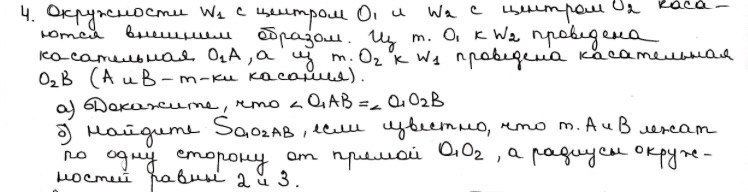 4. Окружности W1 с центром O1 и W2 с центром O2 каса-
ются внешним образом. Из т. O1 к W2 проведена
касательная O1A, а из т. O2 к W1 проведена касательная
O2B (A и B - т-ки касания).
а) Докажите, что ∠O1AB = ∠O1O2B
б) Найдите SO1O2AB, если известно, что т. A и B лежат
по одну сторону от прямой O1O2, а радиусы окруж-
ностей равны 2 и 3.